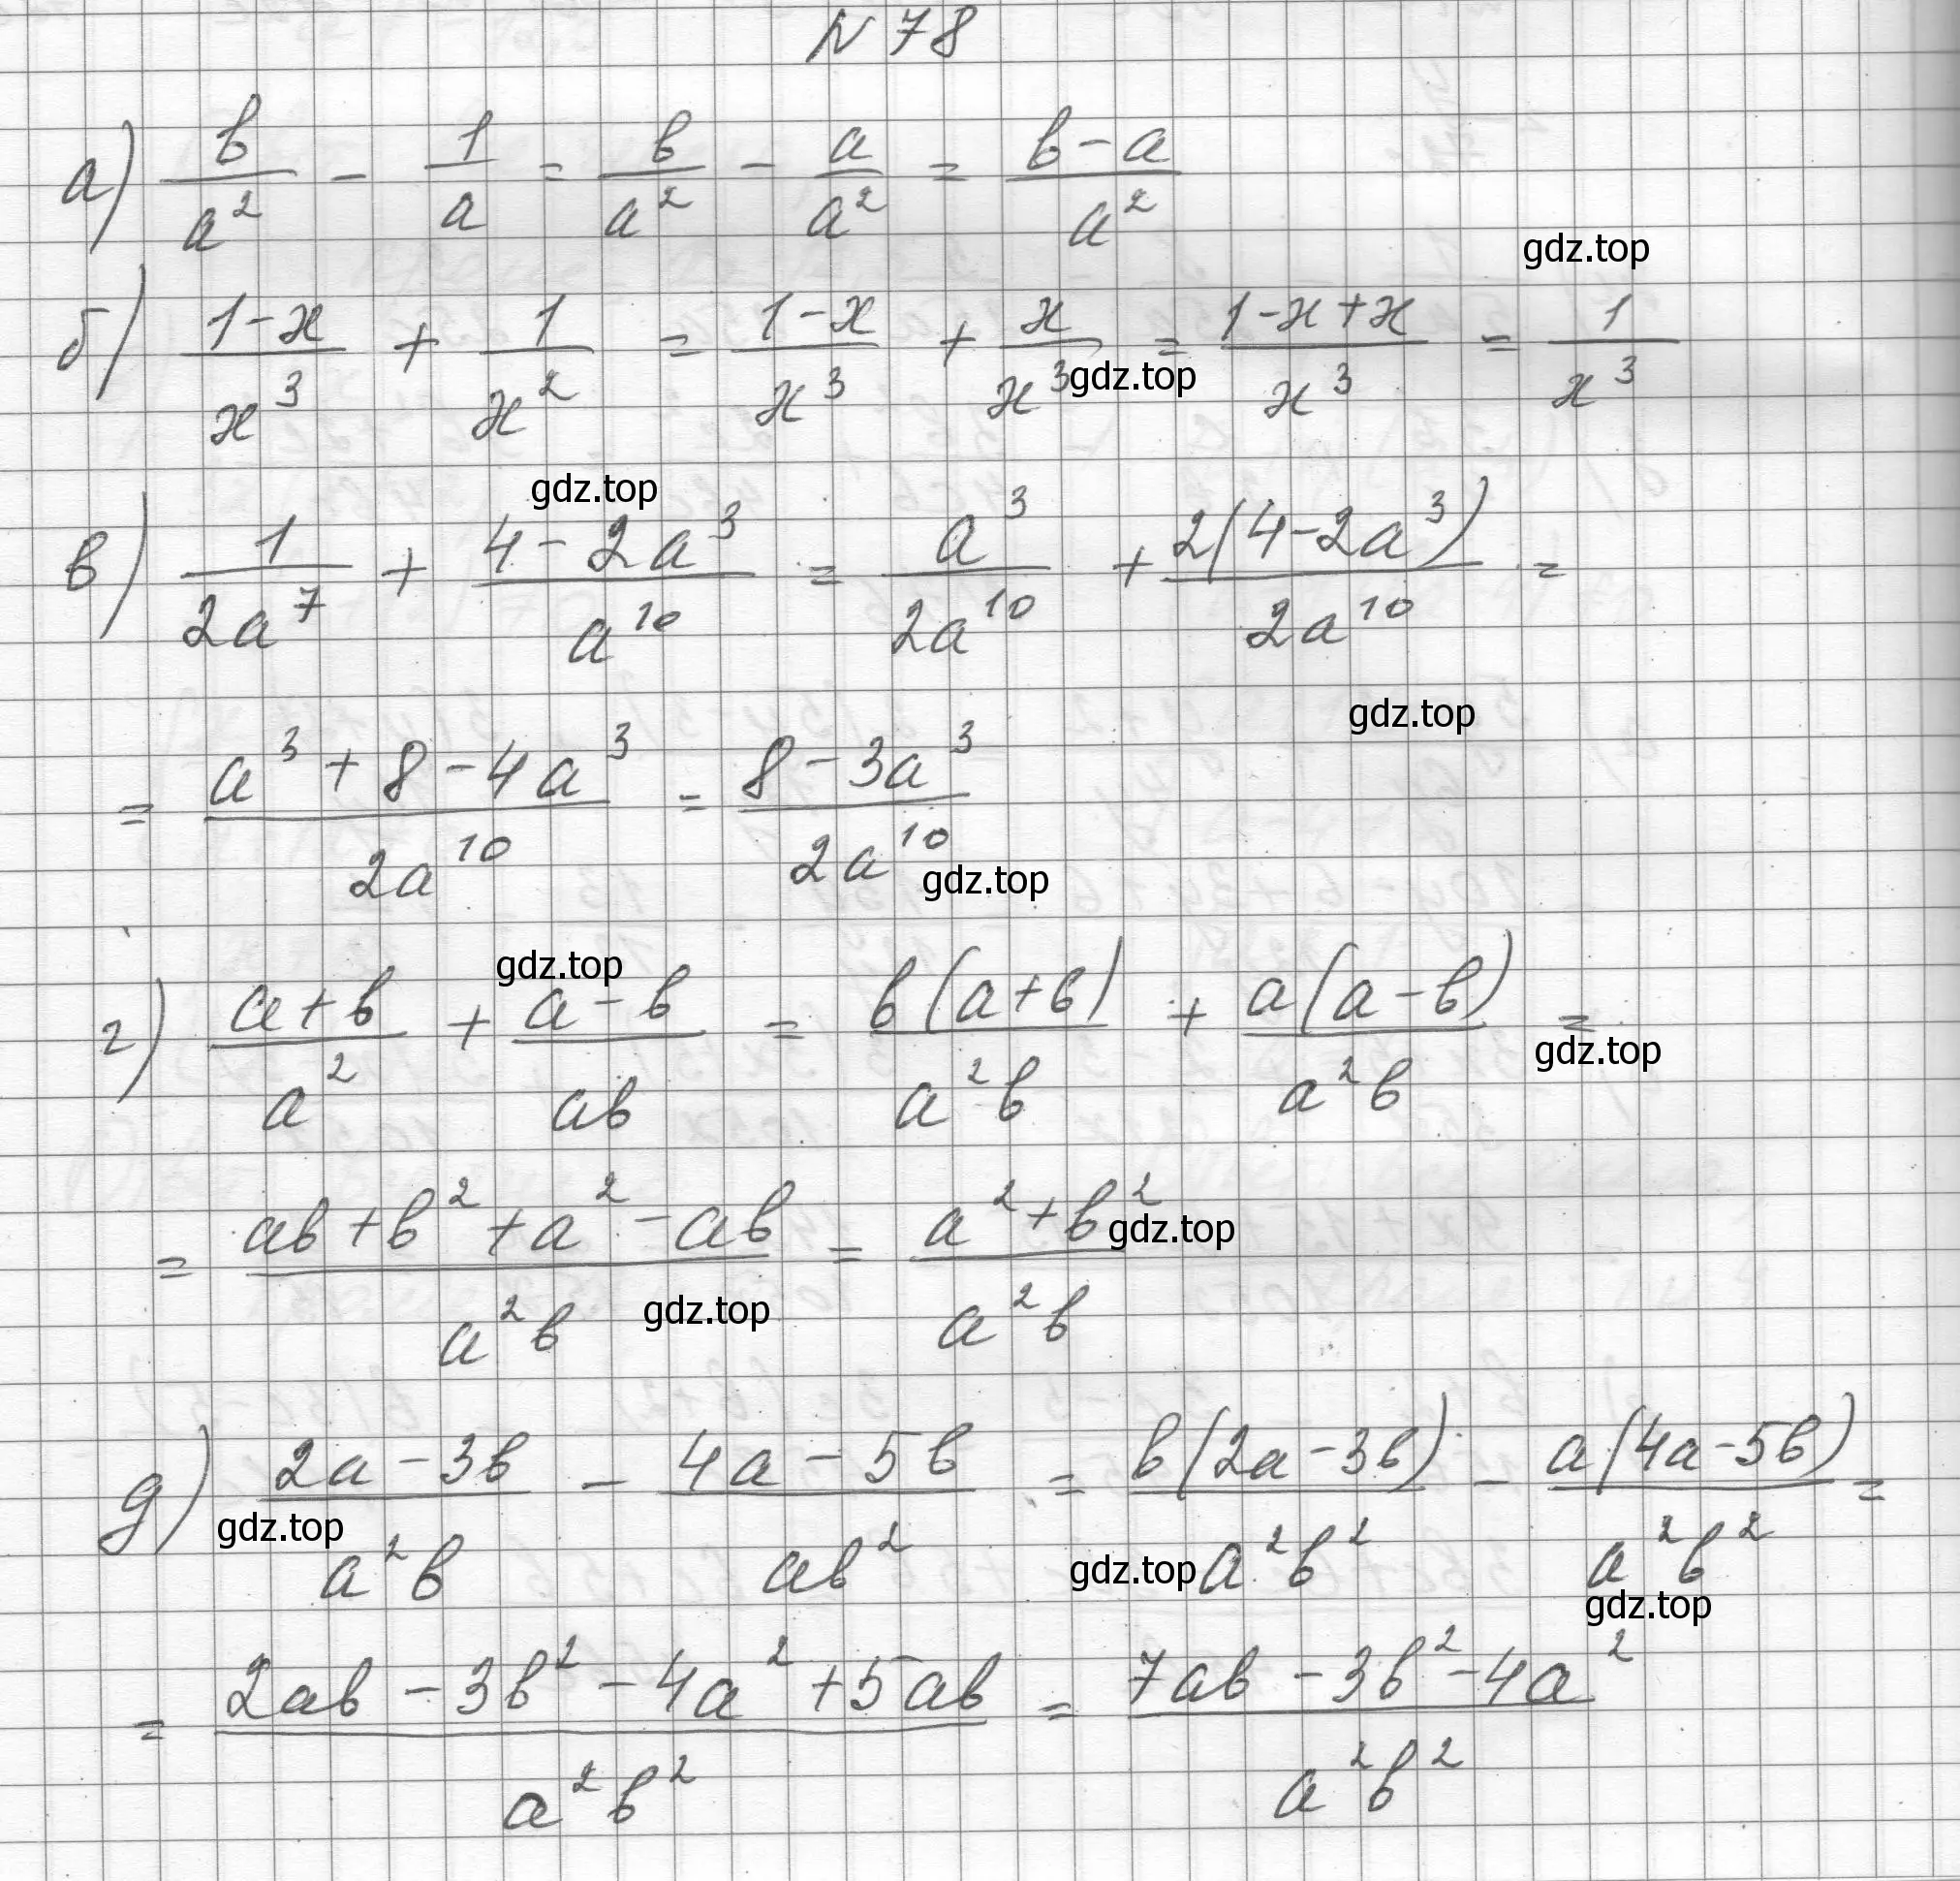 N 78
а) b/a² - 1/a = b/a² - a/a² = (b-a)/a²
gdz.top
б) (1-x)/x³ + 1/x² = (1-x)/x³ + x/x³ = (1-x+x)/x³ = 1/x³
gdz.top
gdz.top
в) 1/(2a⁷) + (4-2a³)/a¹⁰ = a³/(2a¹⁰) + 2(4-2a³)/(2a¹⁰) =
gdz.top
= (a³+8-4a³)/(2a¹⁰) = (8-3a³)/(2a¹⁰)
gdz.top
gdz.top
г) (a+b)/a² + (a-b)/(ab) = b(a+b)/(a²b) + a(a-b)/(a²b) =
gdz.top
= (ab+b²+a²-ab)/(a²b) = (a²+b²)/(a²b)
gdz.top
gdz.top
д) (2a-3b)/(a²b) - (4a-5b)/(ab²) = b(2a-3b)/(a²b²) - a(4a-5b)/(a²b²) =
gdz.top
gdz.top
gdz.top
= (2ab-3b²-4a²+5ab)/(a²b²) = (7ab-3b²-4a²)/(a²b²)